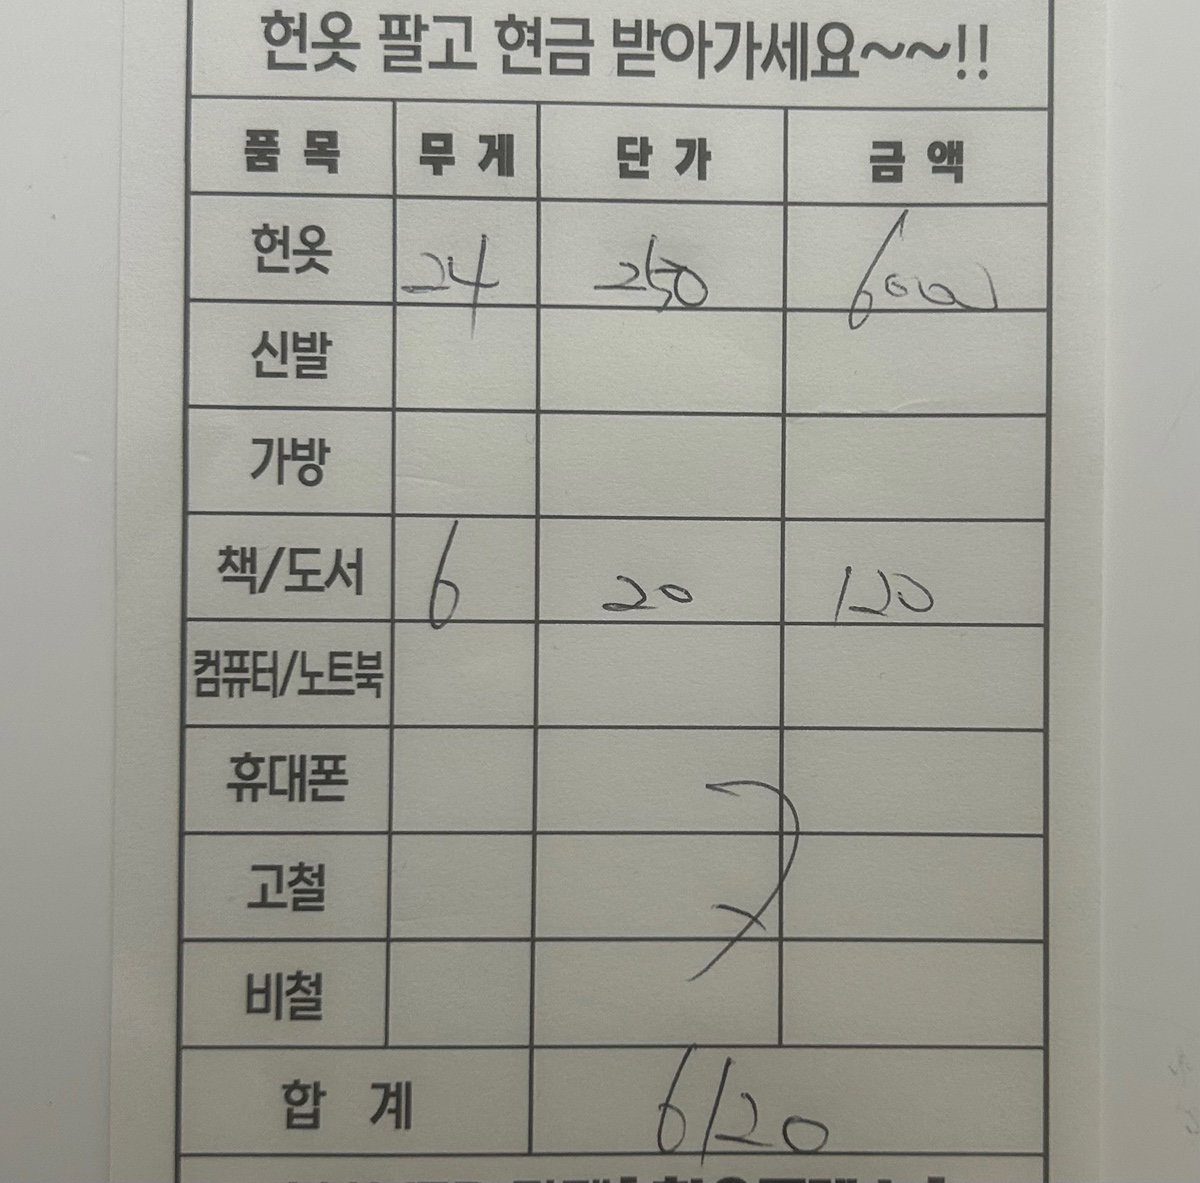 헌옷 팔고 현금 받아가세요~~!!
품 목 무 게 단 가 금 액
헌옷 24 250 6000
신발
가방
책/도서 6 20 120
컴퓨터/노트북
휴대폰
고철
비철
합 계 6120